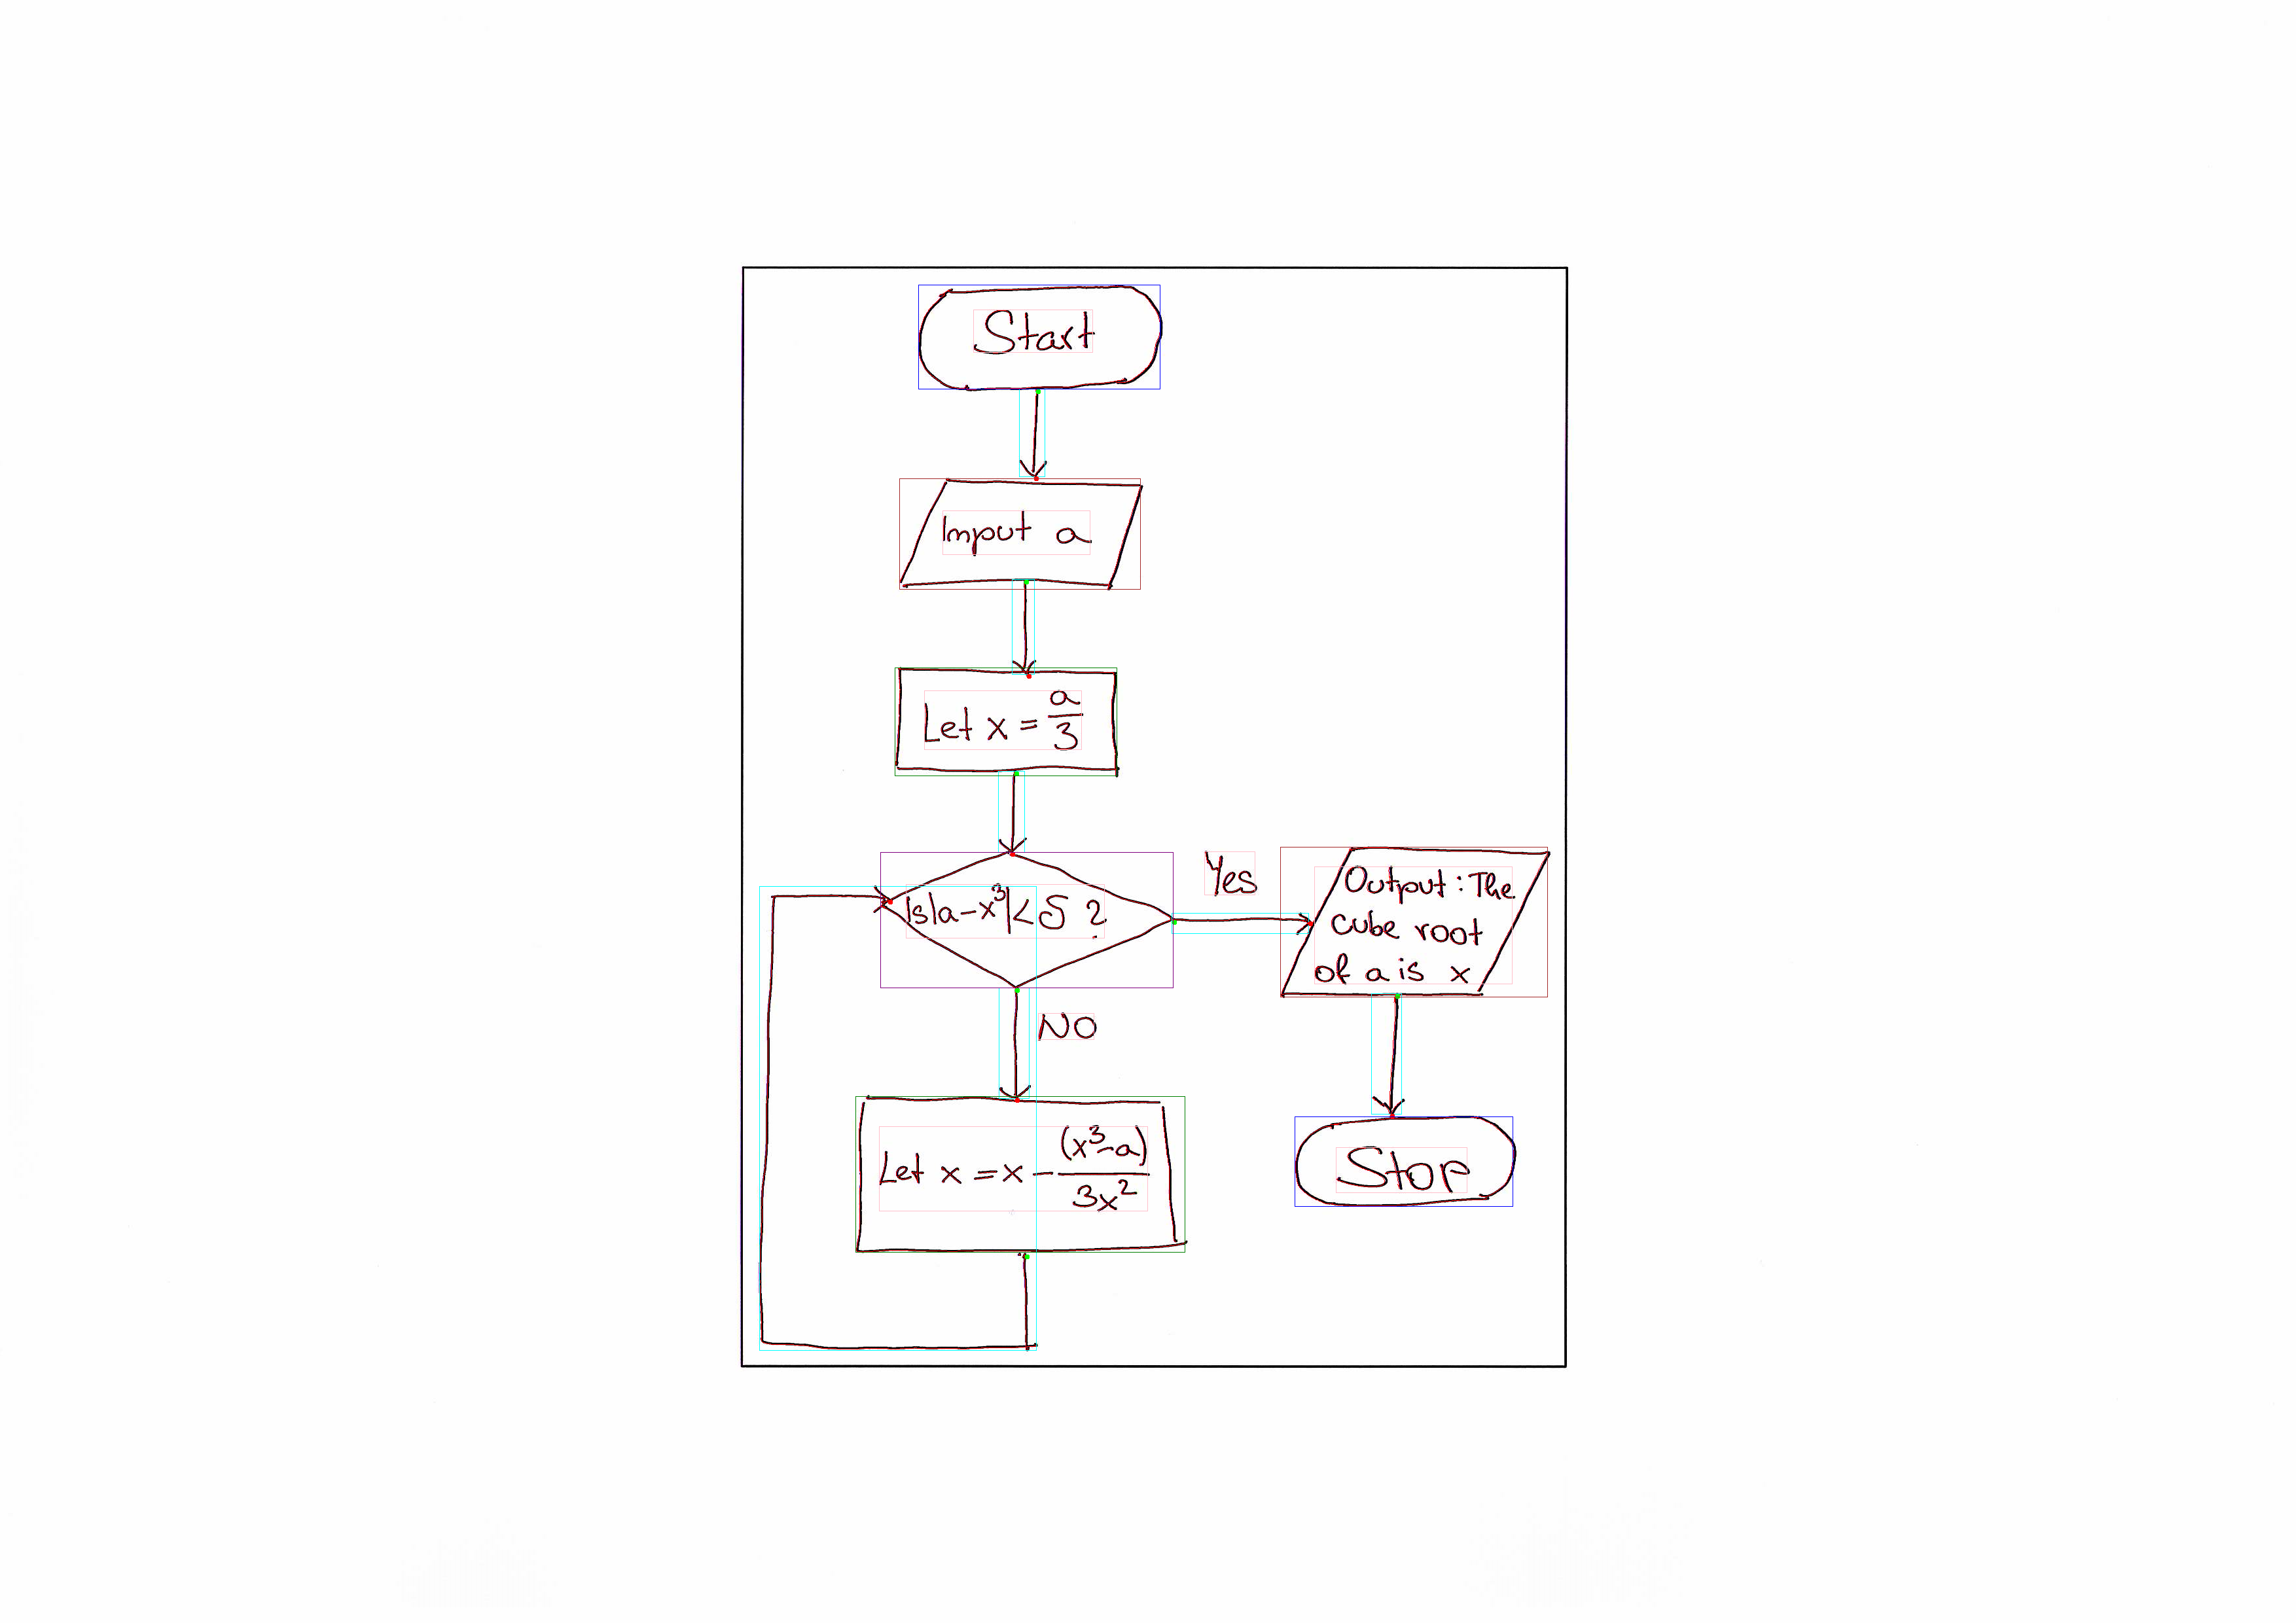 Start
Input a
Let x = a/3
Is |a-x³| < δ ?
Yes
Output: The
cube root
of a is x
NO
Let x = x - (x³-a)/3x²
Stop